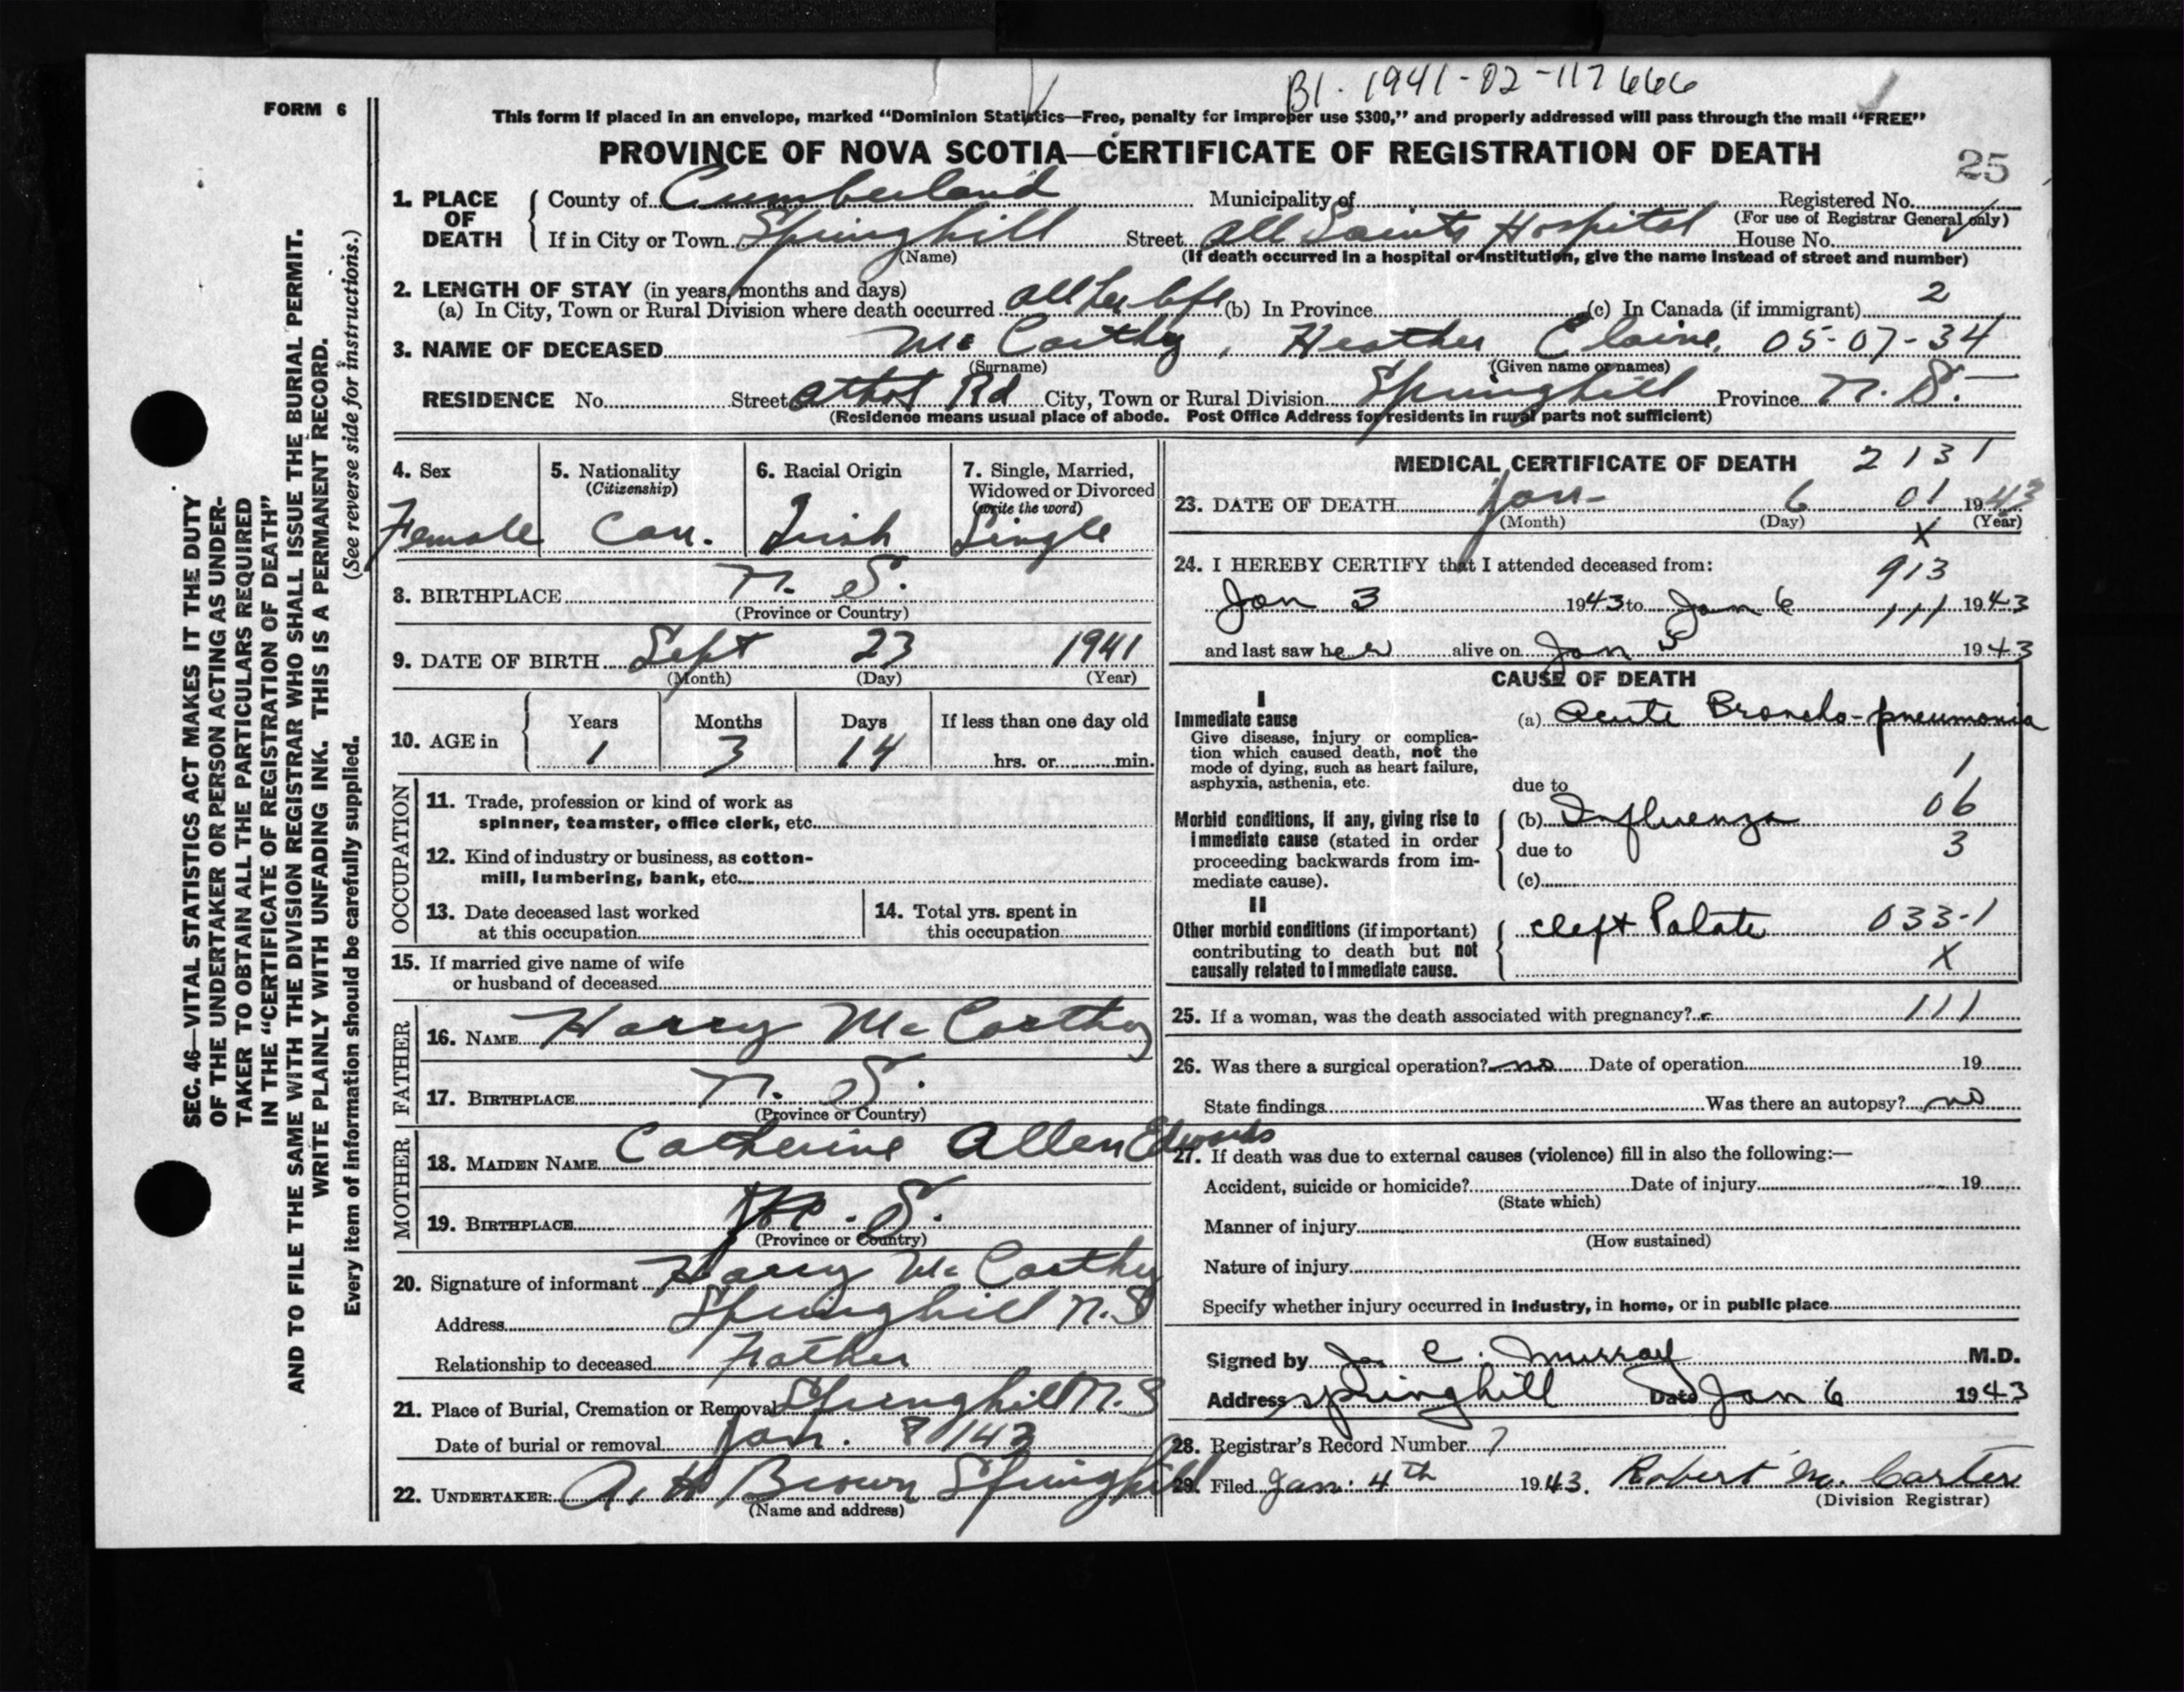 B1. 1941-02-117666
FORM 6
This form if placed in an envelope, marked "Dominion Statistics—Free, penalty for improper use $300," and properly addressed will pass through the mail "FREE"
PROVINCE OF NOVA SCOTIA—CERTIFICATE OF REGISTRATION OF DEATH
25
1. PLACE OF DEATH
County of Cumberland Municipality of Registered No.
(For use of Registrar General only)
If in City or Town Springhill Street All Saints Hospital House No.
(Name) (If death occurred in a hospital or institution, give the name instead of street and number)
2. LENGTH OF STAY (in years, months and days)
(a) In City, Town or Rural Division where death occurred all her life (b) In Province (c) In Canada (if immigrant) 2
3. NAME OF DECEASED McCarthy, Heather Elaine. 05-07-34
(Surname) (Given name or names)
RESIDENCE No. Street Athol Rd City, Town or Rural Division Springhill Province N. S.
(Residence means usual place of abode. Post Office Address for residents in rural parts not sufficient)
4. Sex
Female
5. Nationality
(Citizenship)
Can.
6. Racial Origin
Irish
7. Single, Married,
Widowed or Divorced
(write the word)
Single
8. BIRTHPLACE N. S.
(Province or Country)
9. DATE OF BIRTH Sept 23 1941
(Month) (Day) (Year)
10. AGE in
Years Months Days If less than one day old
1 3 14 hrs. or min.
OCCUPATION
11. Trade, profession or kind of work as
spinner, teamster, office clerk, etc.
12. Kind of industry or business, as cotton-
mill, lumbering, bank, etc.
13. Date deceased last worked
at this occupation
14. Total yrs. spent in
this occupation
15. If married give name of wife
or husband of deceased
FATHER
16. NAME Harry McCarthy
17. BIRTHPLACE N. S.
(Province or Country)
MOTHER
18. MAIDEN NAME Catherine Allen Edwards
19. BIRTHPLACE N. S.
(Province or Country)
20. Signature of informant Harry McCarthy
Address Springhill N.S
Relationship to deceased Father
21. Place of Burial, Cremation or Removal Springhill N.S
Date of burial or removal Jan. 8/43
22. UNDERTAKER: A. H Brown Springhill
(Name and address)
MEDICAL CERTIFICATE OF DEATH 2131
23. DATE OF DEATH Jan- 6 01 1943
(Month) (Day) (Year)
X
24. I HEREBY CERTIFY that I attended deceased from:
913
Jan 3 1943 to Jan 6 111 1943
and last saw her alive on Jan 5 1943
CAUSE OF DEATH
I
Immediate cause
Give disease, injury or complica-
tion which caused death, not the
mode of dying, such as heart failure,
asphyxia, asthenia, etc.
(a) Acute Broncho-pneumonia
1
due to
Morbid conditions, if any, giving rise to
immediate cause (stated in order
proceeding backwards from im-
mediate cause).
(b) Influenza 06
due to 3
(c)
II
Other morbid conditions (if important)
contributing to death but not
causally related to immediate cause.
cleft Palate 033-1
X
25. If a woman, was the death associated with pregnancy? 111
26. Was there a surgical operation? no Date of operation 19
State findings Was there an autopsy? no
27. If death was due to external causes (violence) fill in also the following:—
Accident, suicide or homicide? Date of injury 19
(State which)
Manner of injury
(How sustained)
Nature of injury
Specify whether injury occurred in industry, in home, or in public place
Signed by J. C. Murray M.D.
Address Springhill Date Jan 6 1943
28. Registrar's Record Number 7
29. Filed Jan. 4th 1943. Robert M. Carter
(Division Registrar)
SEC. 46—VITAL STATISTICS ACT MAKES IT THE DUTY
OF THE UNDERTAKER OR PERSON ACTING AS UNDER-
TAKER TO OBTAIN ALL THE PARTICULARS REQUIRED
IN THE "CERTIFICATE OF REGISTRATION OF DEATH"
AND TO FILE THE SAME WITH THE DIVISION REGISTRAR WHO SHALL ISSUE THE BURIAL PERMIT.
WRITE PLAINLY WITH UNFADING INK. THIS IS A PERMANENT RECORD.
Every item of information should be carefully supplied. (See reverse side for instructions.)